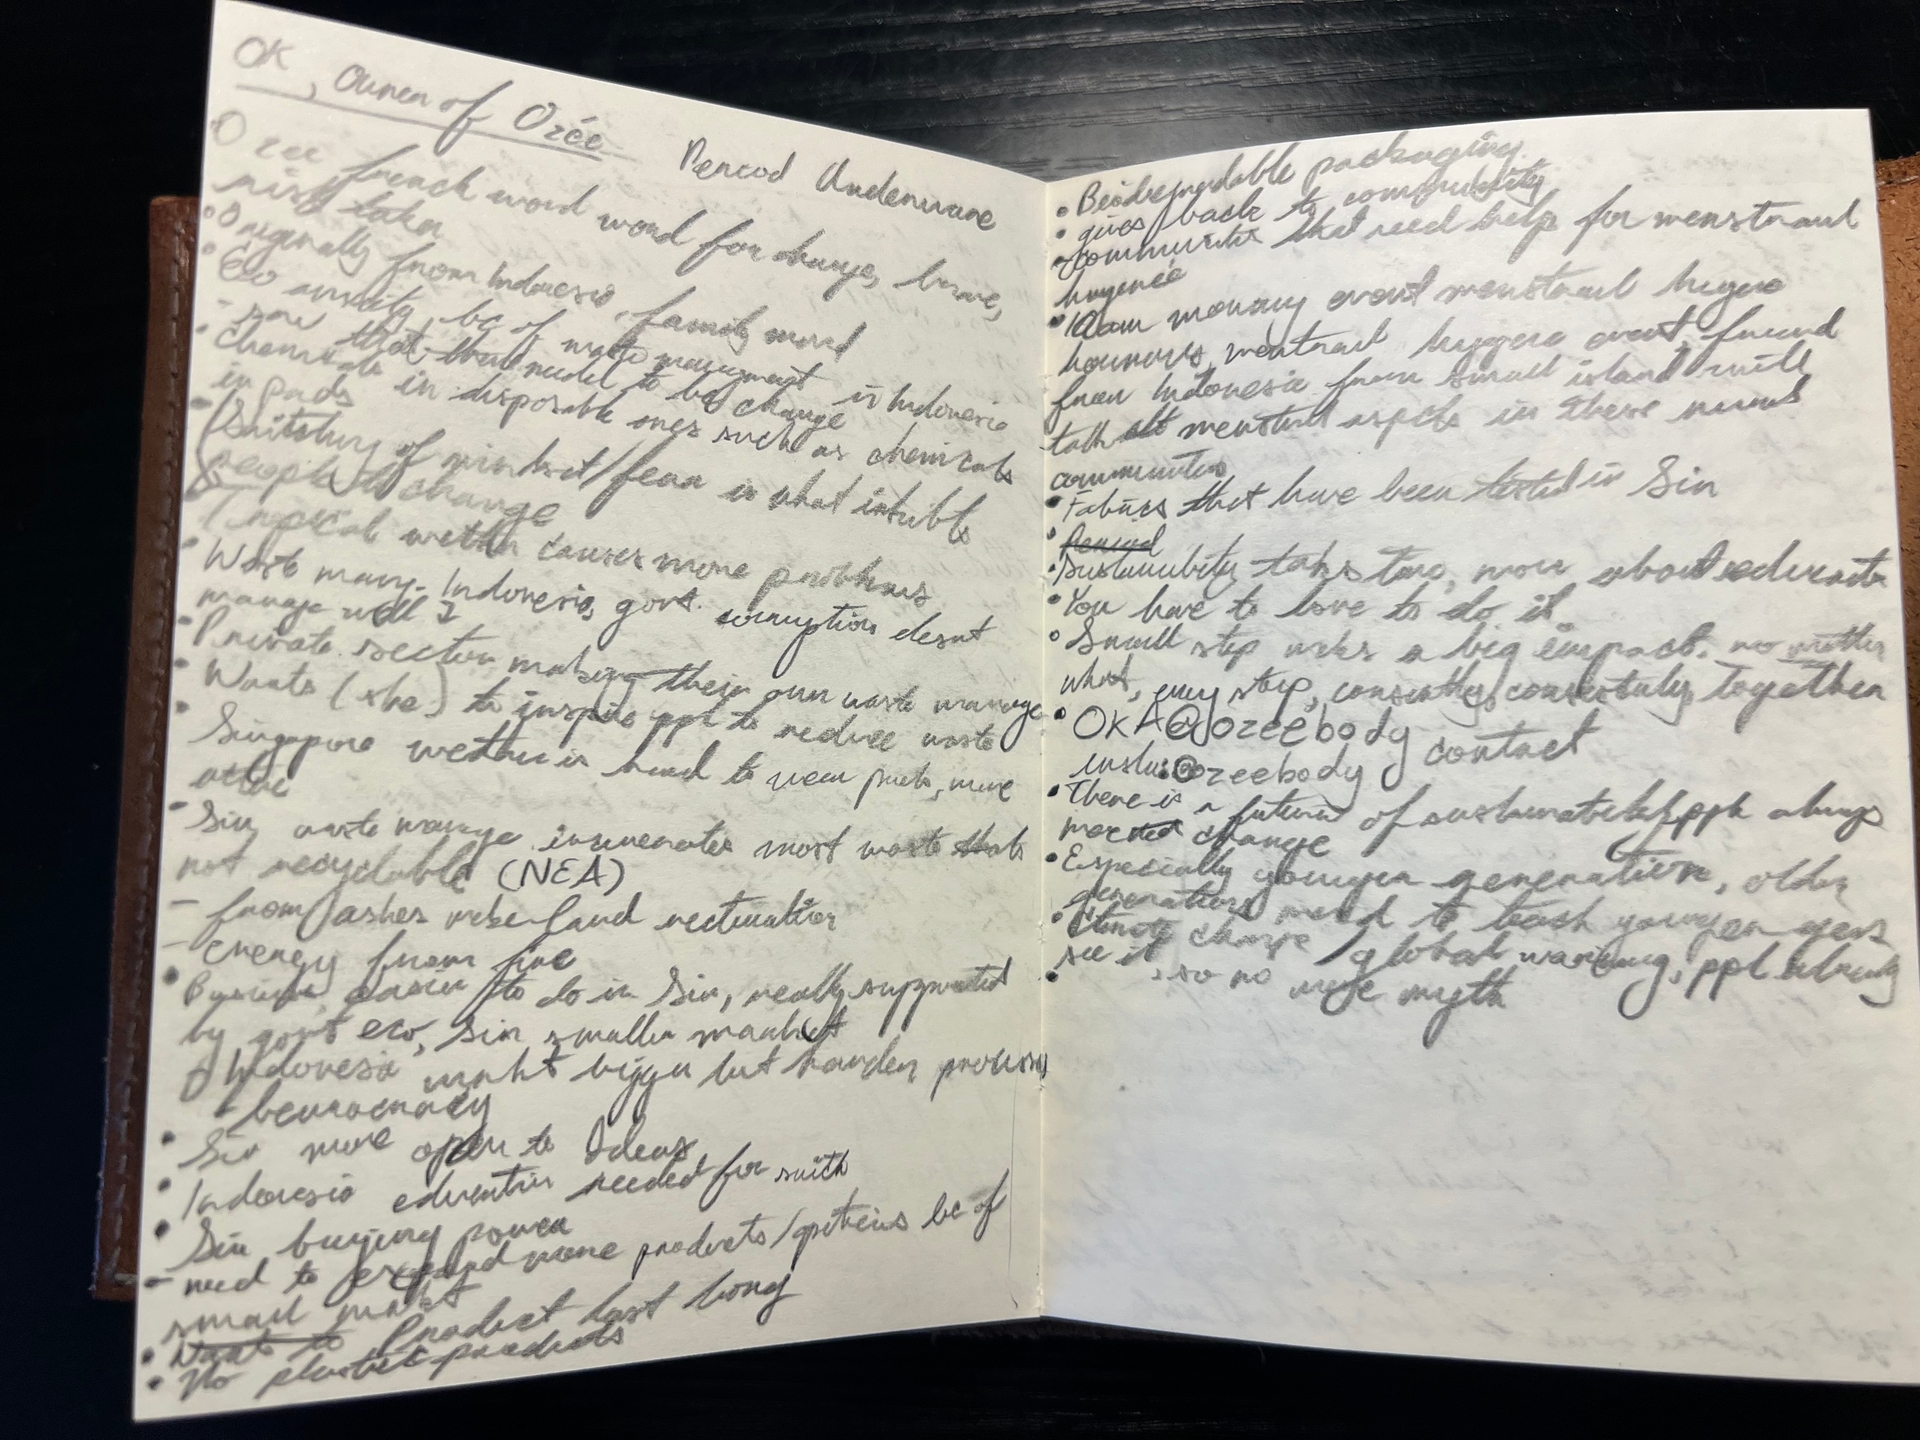 OK, Owner of Ozée
Period Underware
Ozee french word word for change, brave,
risk taker
• Originally from Indonesia, family moved
• Eco anxity, bc of waste management in Indonesia
- saw that that needed to be change
• Chemicals in disposable ones such as chemicals
in pads
• Switching of mindset/fear is what
people to change
• Tropical wether causes more problems
• Waste manag. Indonesia, govt. corruption desnt
manage well
• Private sector making their own waste manage
• Wants (she) to inspire ppl to reduce waste
• Singapore wether is hard to wear pads, more
active
• Sin waste manage incinerates most waste thats
not recyclable (NEA)
- from ashes make land reclimation
- energy from fire
• Business easier to do in Sin, really supported
by govt eco, Sin smaller market
Indonesia market bigger but harder process
- beurocracy
• Sin more open to Ideas
• Indonesia education needed for switch
• Sin buying power
- need to expand more products/options bc of
small market
• Wants to Product last long
• No plastic products
• Biodegradable packaging
• gives back to community
- communities that need help for menstraul
hygenee
• 10am monday event menstraul hygene
menstraul hygene event, friend
from Indonesia from small island will
talk abt menstural aspects in these rural
communities
• Fabrics that have been tested in Sin
• Period
• Sustainability takes time, more about education
• You have to love to do it
• Small step makes a big impact. no matter
what, every step, together
• OKA@ozeebody contact
insta: @ozeebody
• There is a future of sustainability ppl always
change
• Especially younger generation, older
generations need to teach younger gens
• Climate change / global warming, ppl already
see it, so no more myth